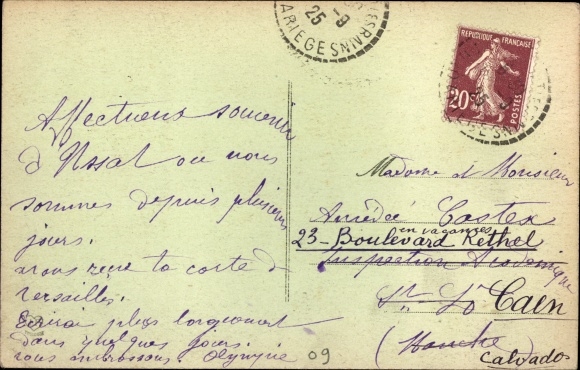 25 -9
ARIEGE
REPUBLIQUE FRANÇAISE
20c
POSTES
Affectueux souvenir
d'Ussat ou nous
sommes depuis plusieurs
jours.
avons reçu ta carte de
Versailles.
Ecrirai plus longuement
dans quelques jours.
vous embrassons. Olympie
09
Madame et Monsieur
Amédée Castex
en vacances
23 - Boulevard Rethel
Inspection Académique
St Lô Caen
(Manche
Calvados